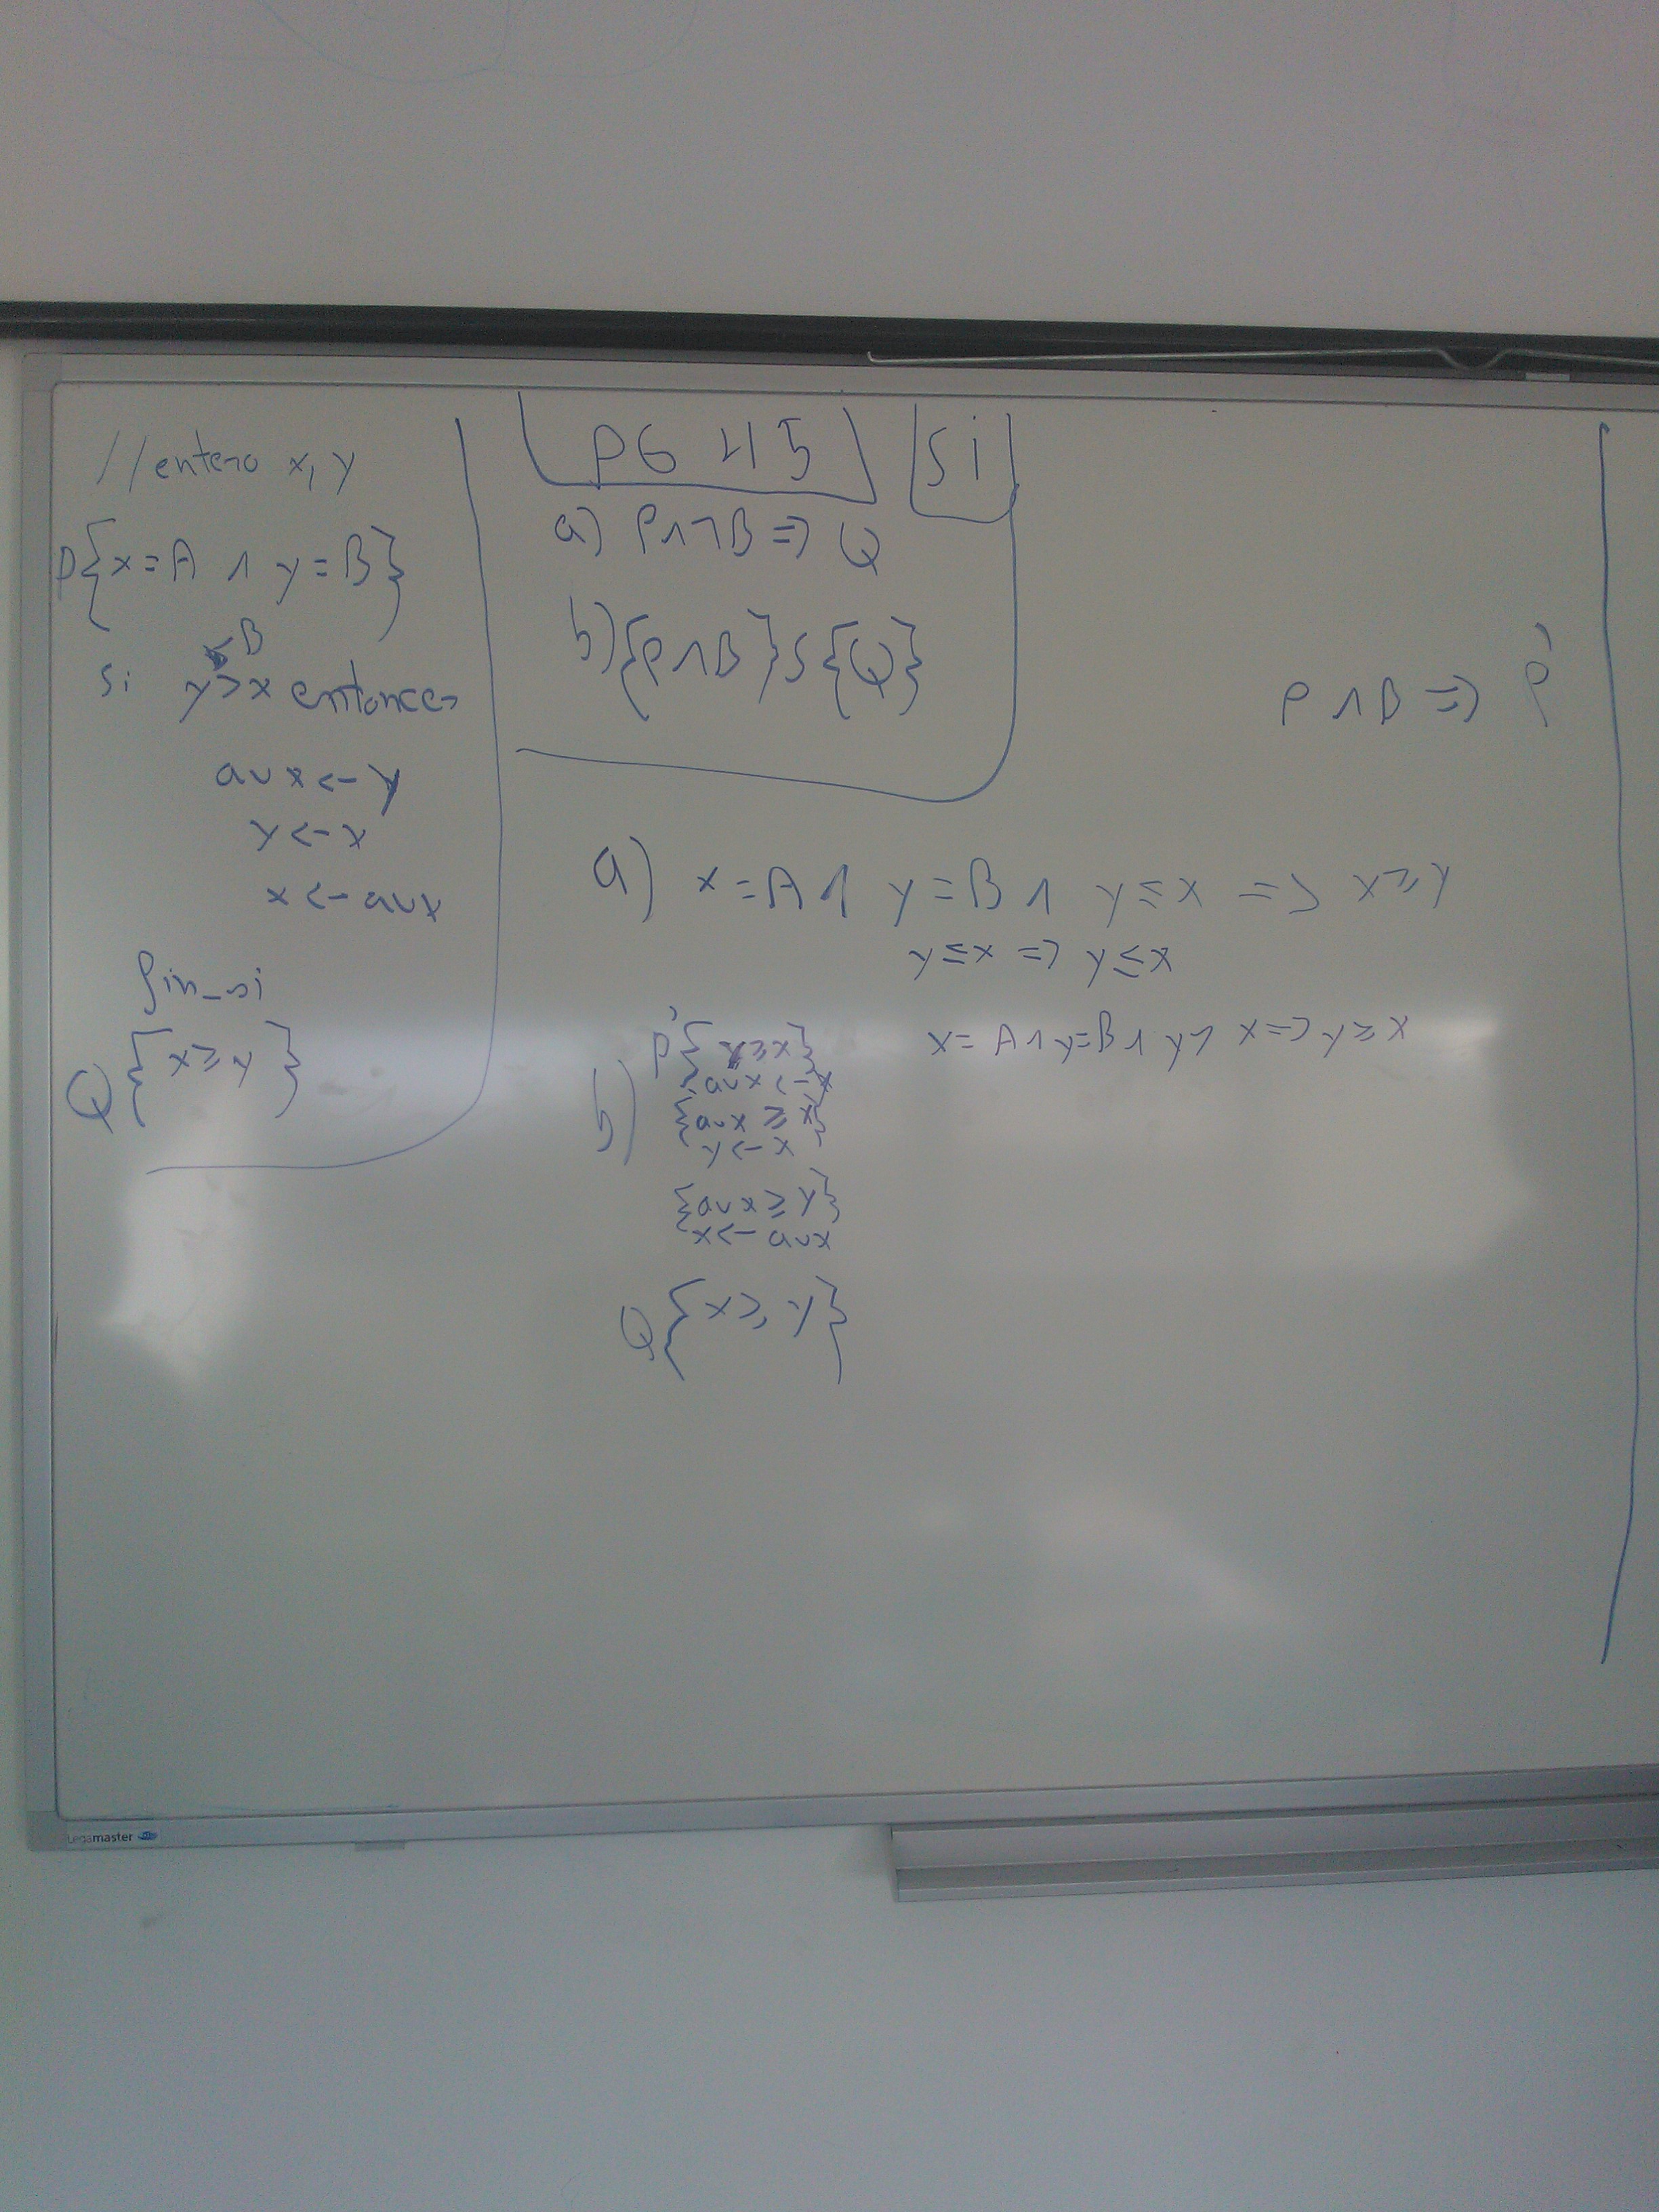 //entero x, y
P{x=A ∧ y=B}
B
Si y>x entonces
aux<-y
y<-x
x<-aux
fin_si
Q{x≥y}
PG 45
Si
a) P∧¬B => Q
b) {P∧B}S{Q}
P∧B => P'
a) x=A∧ y=B∧ y≤x => x≥y
y≤x => y≤x
x=A∧y=B∧y> x=>y≥x
b)
P'{y≥x}
aux<-x
{aux≥x}
y<-x
{aux≥y}
x<-aux
Q{x≥y}
Legamaster